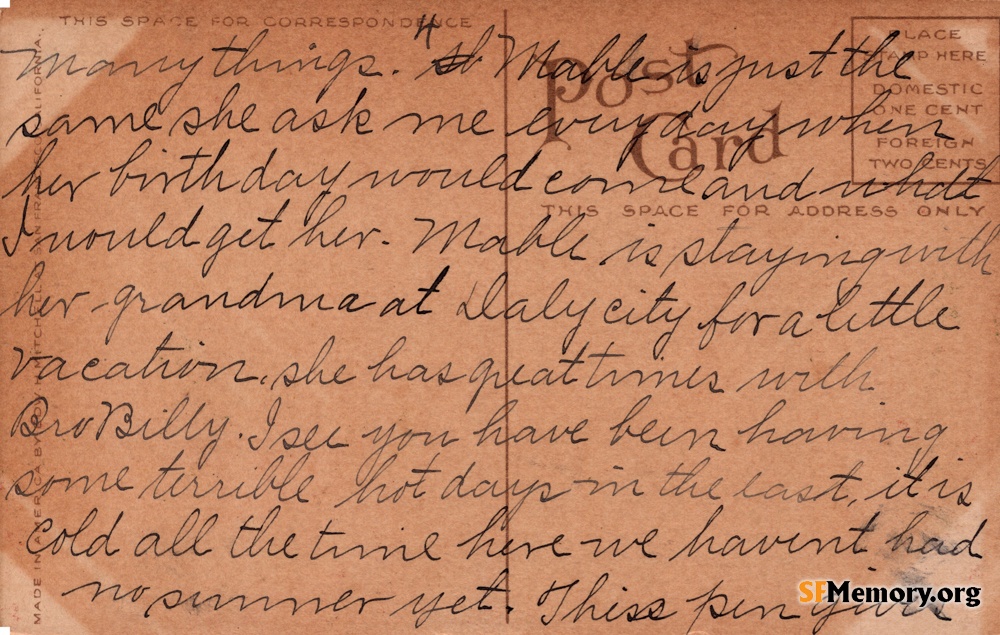 THIS SPACE FOR CORRESPONDENCE
4
PLACE
STAMP HERE
DOMESTIC
ONE CENT
FOREIGN
TWO CENTS
Post
Card
THIS SPACE FOR ADDRESS ONLY
Many things. Mable is just the
same she ask me every day when
her birthday would come and what
I would get her. Mable is staying with
her grandma at Daly city for a little
vacation, she has great times with
Bro Billy. I see you have been having
some terrible hot days in the east, it is
cold all the time here we havent had
no summer yet. Thiss pen gives
MADE IN AMERICA BY EDW. H. MITCHELL, SAN FRANCISCO, CALIFORNIA.
SFMemory.org